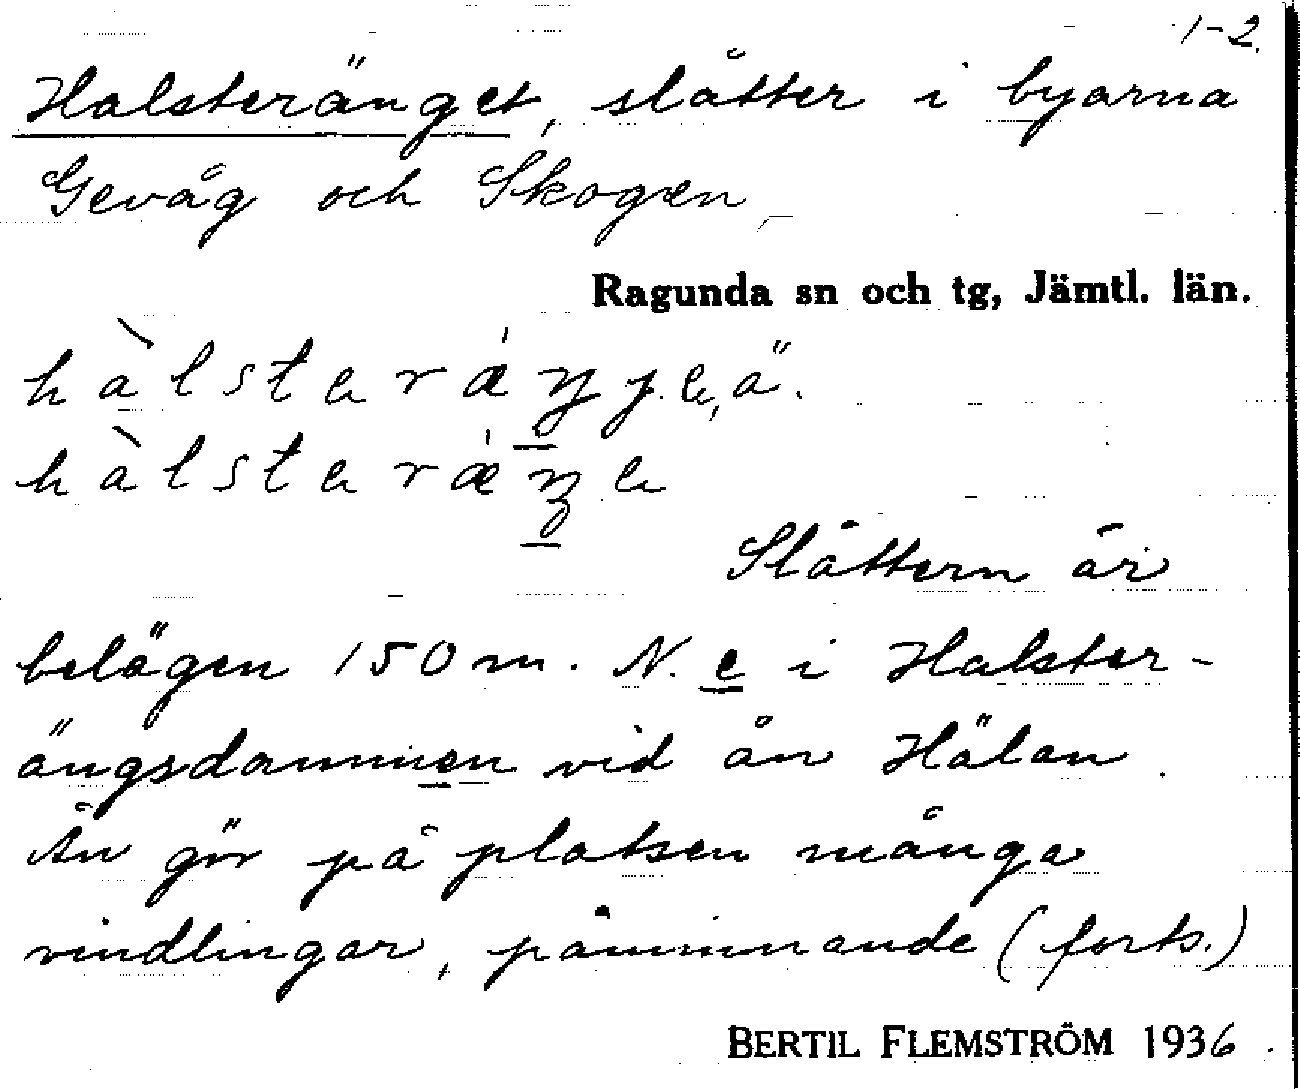 1-2.
Halsteränget, slåtter i byarna
Gevåg och Skogen
Ragunda sn och tg, Jämtl. län.
Slåttern är
belägen 150 m. N. e i Halster-
ängsdammen vid ån Hälan.
Ån gör på platsen många
vindlingar, påminnande (forts.)
BERTIL FLEMSTRÖM 1936.